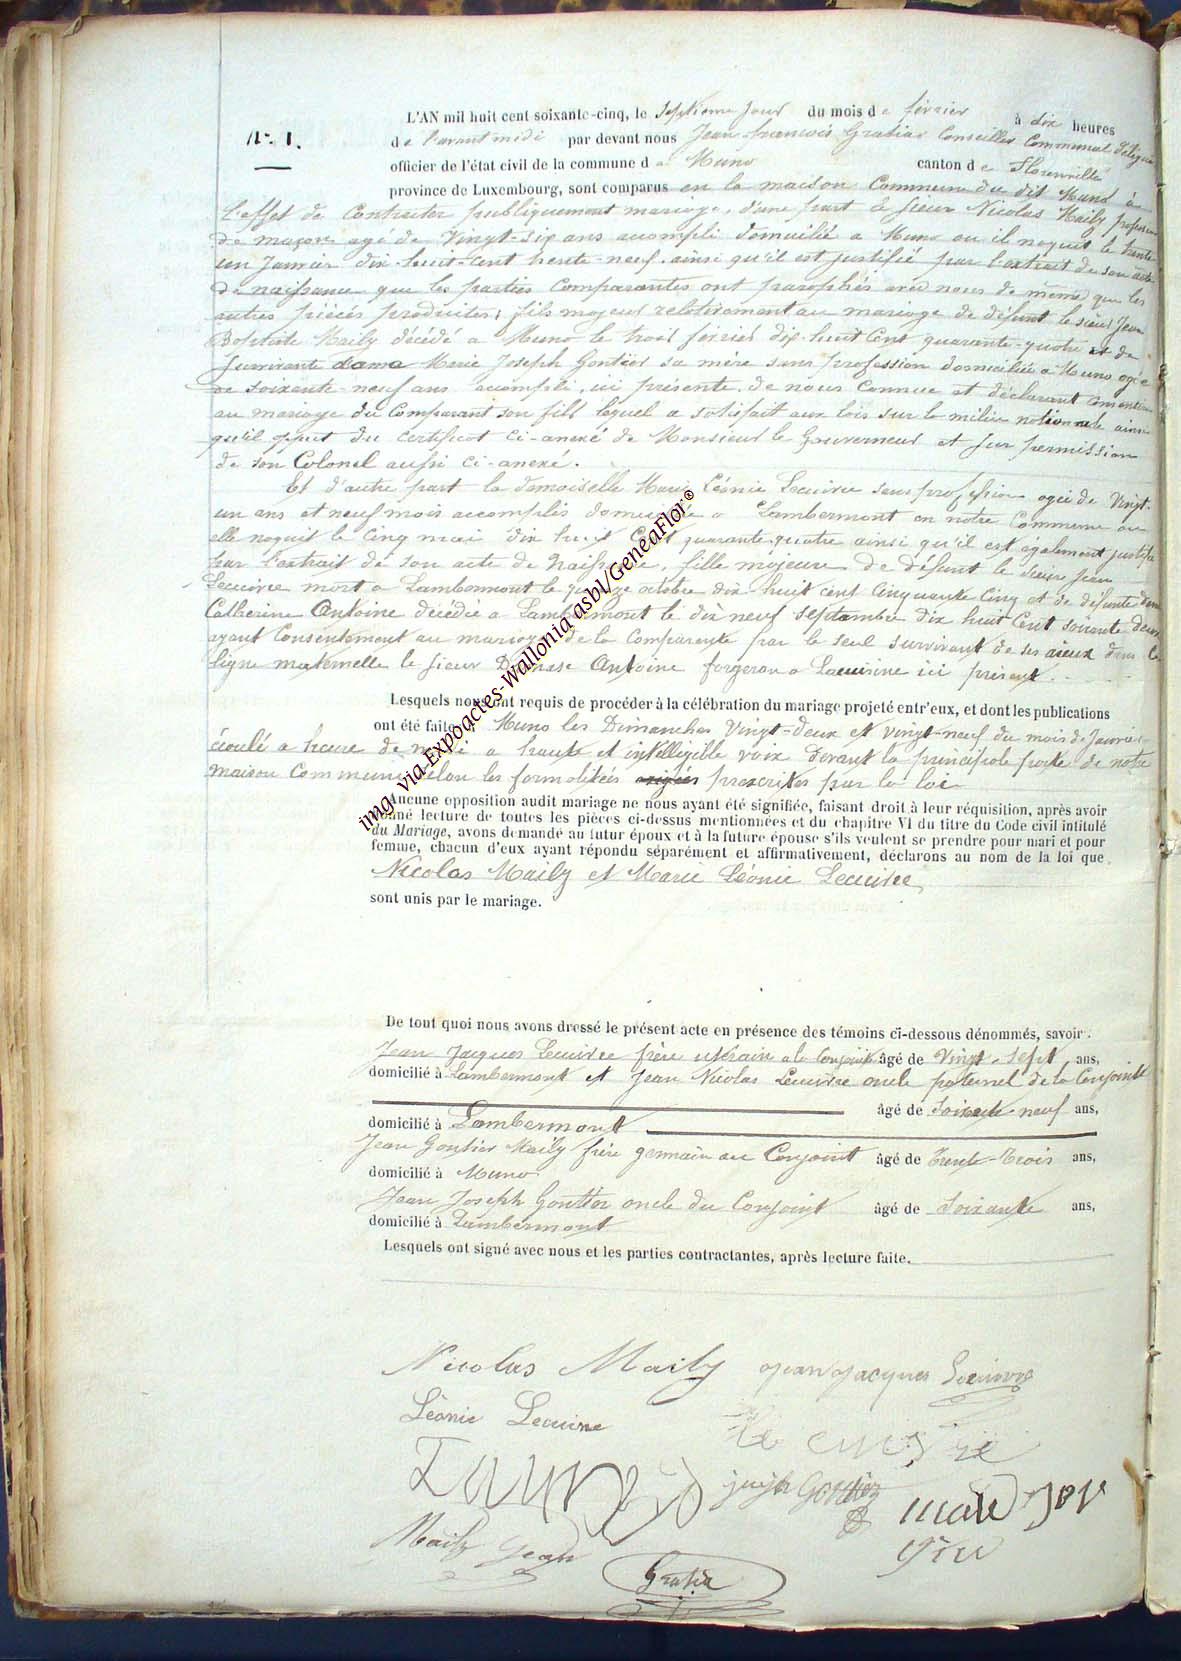 N° 1.
L'AN mil huit cent soixante-cinq, le Septième jour du mois de février à dix heures
de l'avant midi par devant nous Jean françois Gratia Conseiller Communal délégué
officier de l'état civil de la commune de Muno canton de Florenville
province de Luxembourg, sont comparus en la maison Commune du dit Muno à
l'effet de Contracter publiquement mariage, d'une part le sieur Nicolas Maily profession
de maçon age de Vingt-six ans accompli domicilié a Muno ou il naquit le trente
un Janvier dix-huit-cent trente-neuf. ainsi qu'il est justifié par l'extrait de son acte
de naissance que les parties Comparantes ont paraphés avec nous de même que les
autres pièces produites; fils majeur relativement au mariage de défunt le sieur Jean
Baptiste Maily décédé a Muno le trois février dix-huit Cent quarante-quatre et de
survivante dame Marie Joseph Gontier sa mère sans profession domiciliée a Muno agée
de soixante-neuf ans accompli, ici présente, de nous Connue et déclarant consentir
au mariage du Comparant son fils lequel a satisfait aux lois sur la milice nationale ainsi
qu'il appert du certificat ci-anexé de Monsieur le Gouverneur et sur permission
de son Colonel aussi ci-anexé.
Et d'autre part la demoiselle Marie Léonie Lecuivre sans profession agée de Vingt-
un ans et neuf mois accomplis domiciliée a Lambermont en notre Commune ou
elle naquit le Cinq mai dix huit Cent quarante-quatre ainsi qu'il est également justifié
par l'extrait de son acte de Naissance, fille majeure de défunt le sieur Jean
Lecuivre mort a Lambermont le quinze octobre dix huit cent Cinquante Cinq et de défunte dame
Catherine Antoine décédée a Lambermont le dix neuf septembre dix huit Cent soixante deux
ayant Consentement au mariage de la Comparante par le seul survivant de ses aieux dans la
ligne maternelle le sieur Damase Antoine forgeron a Lacuisine ici présent.
Lesquels nous ont requis de procéder à la célébration du mariage projeté entr'eux, et dont les publications
ont été faites à Muno les Dimanches Vingt-deux et vingt-neuf du mois de Janvier
écoulé a heure de midi a haute et intelligible voix devant la principale porte de notre
maison Commune selon les formalitées exigées prescrites par la loi
Aucune opposition audit mariage ne nous ayant été signifiée, faisant droit à leur réquisition, après avoir
donné lecture de toutes les pièces ci-dessus mentionnées et du chapitre VI du titre du Code civil intitulé
du Mariage, avons demandé au futur époux et à la future épouse s'ils veulent se prendre pour mari et pour
femme, chacun d'eux ayant répondu séparément et affirmativement, déclarons au nom de la loi que
Nicolas Maily et Marie Léonie Lecuivre
sont unis par le mariage.
De tout quoi nous avons dressé le présent acte en présence des témoins ci-dessous dénommés, savoir :
Jean Jacques Lecuivre frère utérain a la Conjointe âgé de Vingt-sept ans,
domicilié à Lambermont et Jean Nicolas Lecuivre oncle paternel de la Conjointe
âgé de Soixante neuf ans,
domicilié à Lambermont
Jean Gontier Maily frère germain au Conjoint âgé de Trente-Trois ans,
domicilié à Muno
Jean Joseph Gontier oncle du Conjoint âgé de Soixante ans,
domicilié à Lambermont
Lesquels ont signé avec nous et les parties contractantes, après lecture faite.
Nicolas Maily jean jacques Lecuivre
Léonie Lecuivre
le cuivre
joseph Gontier
Maily Jean
Gratia
img via Expoactes-Wallonia asbl/GeneaFlor®